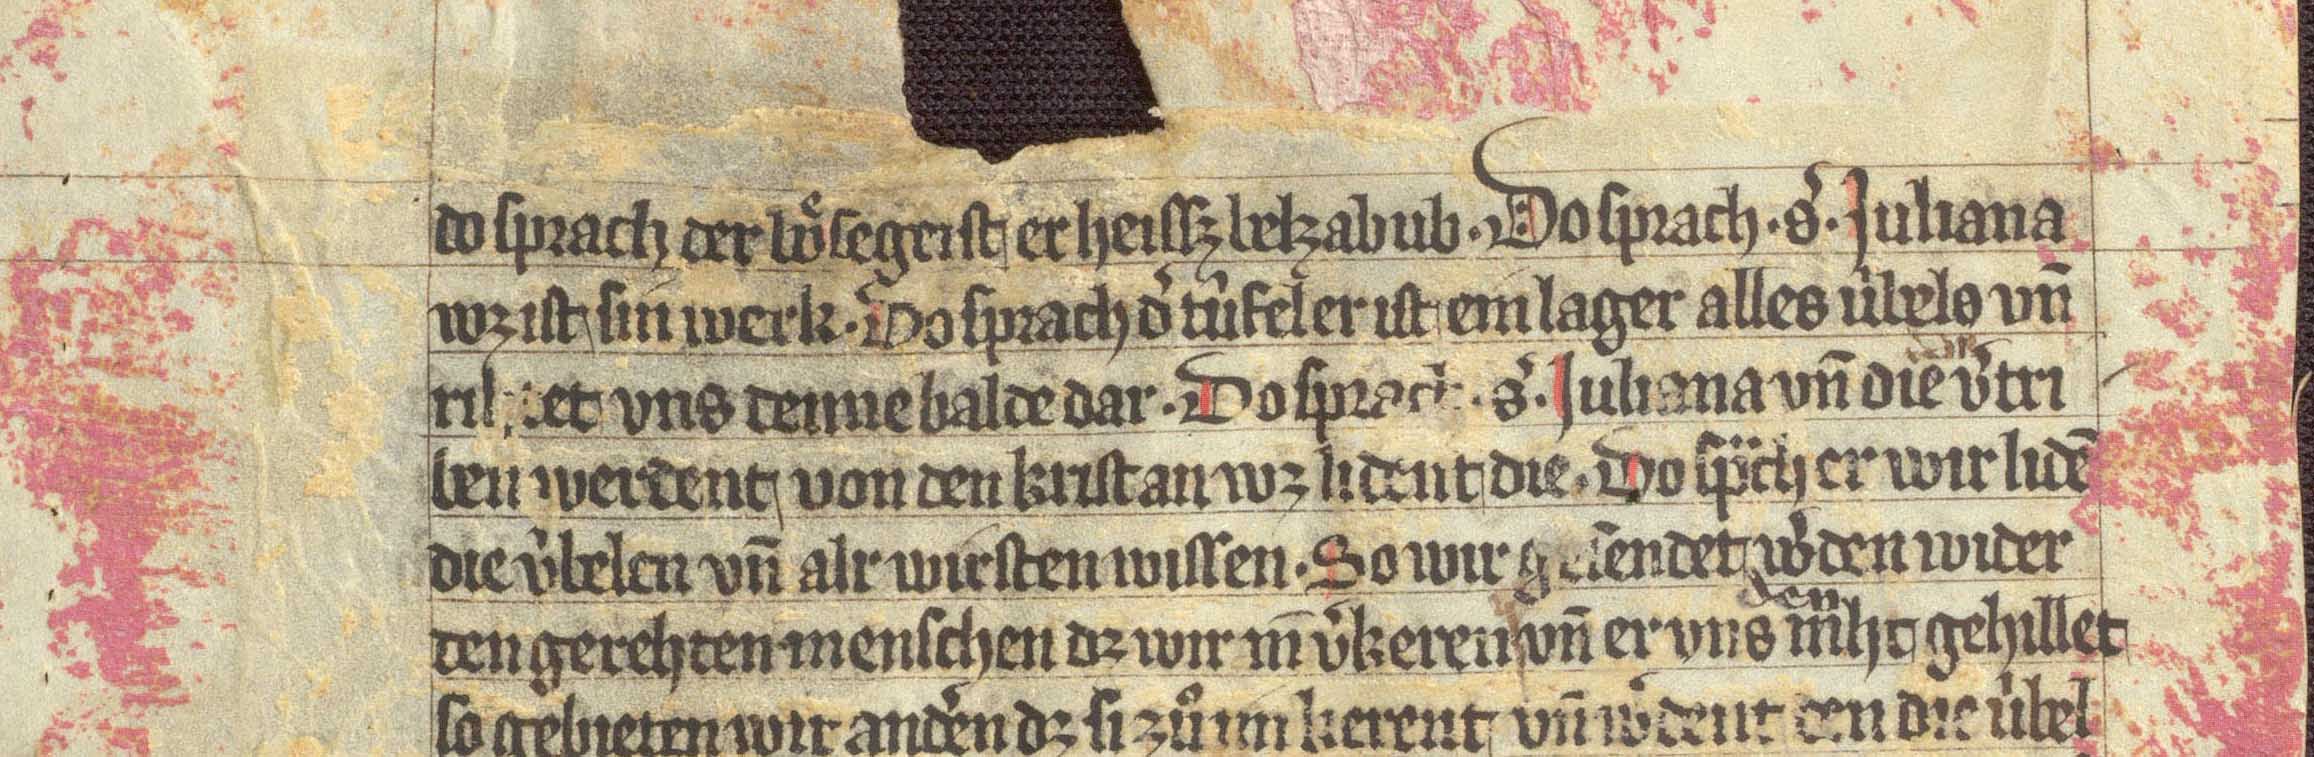 do sprach der boͤse geist er heissz belzabub · Do sprach · s᷒ · Juliana
wz ist sin werk · Do sprach d᷒ tuͥfel er ist ein lager alles uͥbels vn̄
et vns denne balde dar · Do sprach · s᷒ · Juliana vn̄ die v᷒tri
ben werdent von den kristan wz lident die · Do spͣch er wir lidē
die uͥbelen vn̄ alr wirsten wissen · So wir gesendet w᷒den wider
den gerehten menschen dz wir in̄ v᷒keren vn̄ er vns den niht gehillet
so gebieten wir and᷒en dz si zuͦ im kerent vn̄ w᷒dent den die uͥbel